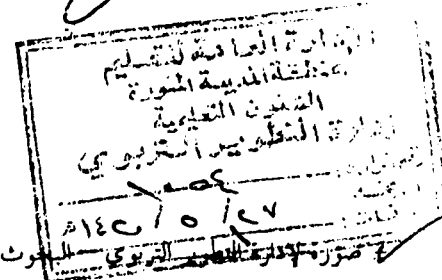 الإدارة العامة للتعليم
بمنطقة المدينة المنورة
الشئون التعليمية
إدارة التطوير التربوي
٥٤
٢٧ / ٥ / ١٤٢ هـ
صورة لإدارة التطوير التربوي البحوث